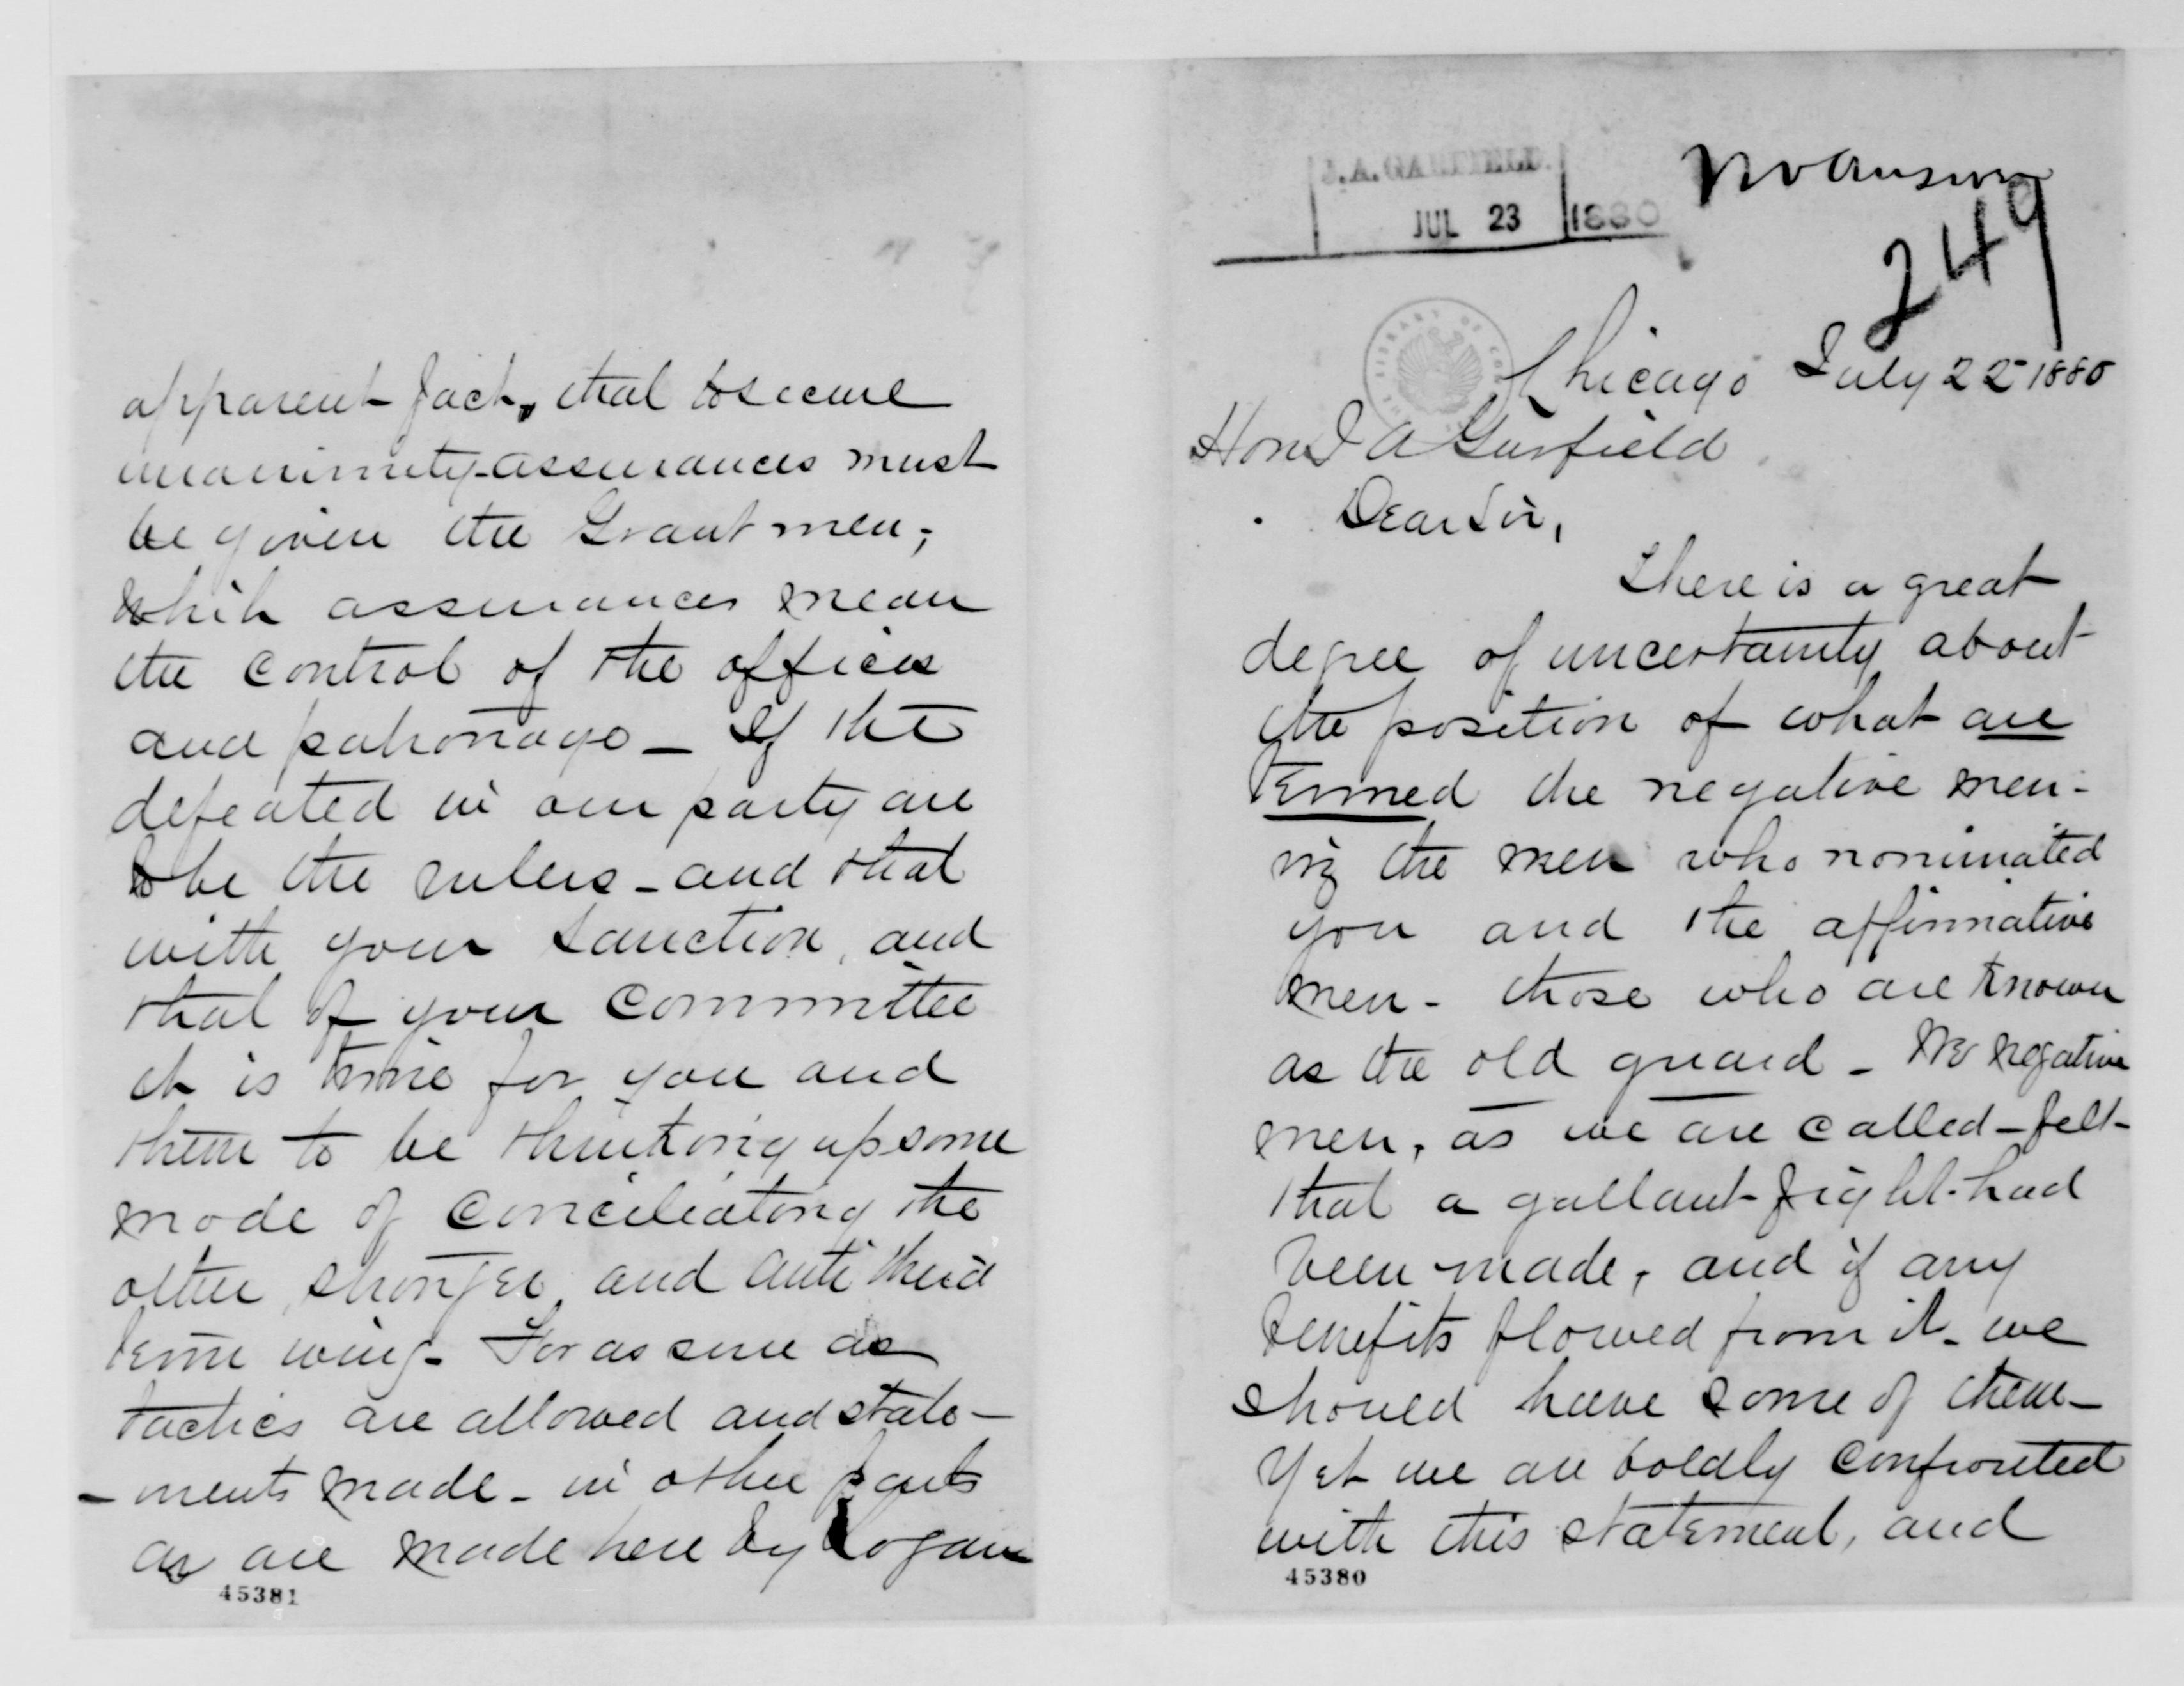 J.A. GARFIELD.
JUL 23 1880
249
Chicago July 22 1880
Hon J A Garfield
Dear Sir,
There is a great
degree of uncertainty about
the position of what are
termed the negative men -
viz the men who nominated
you and the affirmative
men - those who are known
as the old guard - We negative
men, as we are called - felt
that a gallant fight had
been made, and if any
benefits flowed from it - we
should have some of them -
Yet we are boldly confronted
with this statement, and
45380
apparent fact, that to secure
unanimity - assurances must
be given the Grant men;
which assurances mean
the control of the offices
and patronage - If the
defeated in our party are
to be the rulers - and that
with your sanction, and
that of your committee
it is time for you and
them to be thinking up some
mode of conciliating the
other, stronger, and anti third
term wing - For as sure as
tactics are allowed and state-
- ments made - in other parts
as are made here by Logan
45381